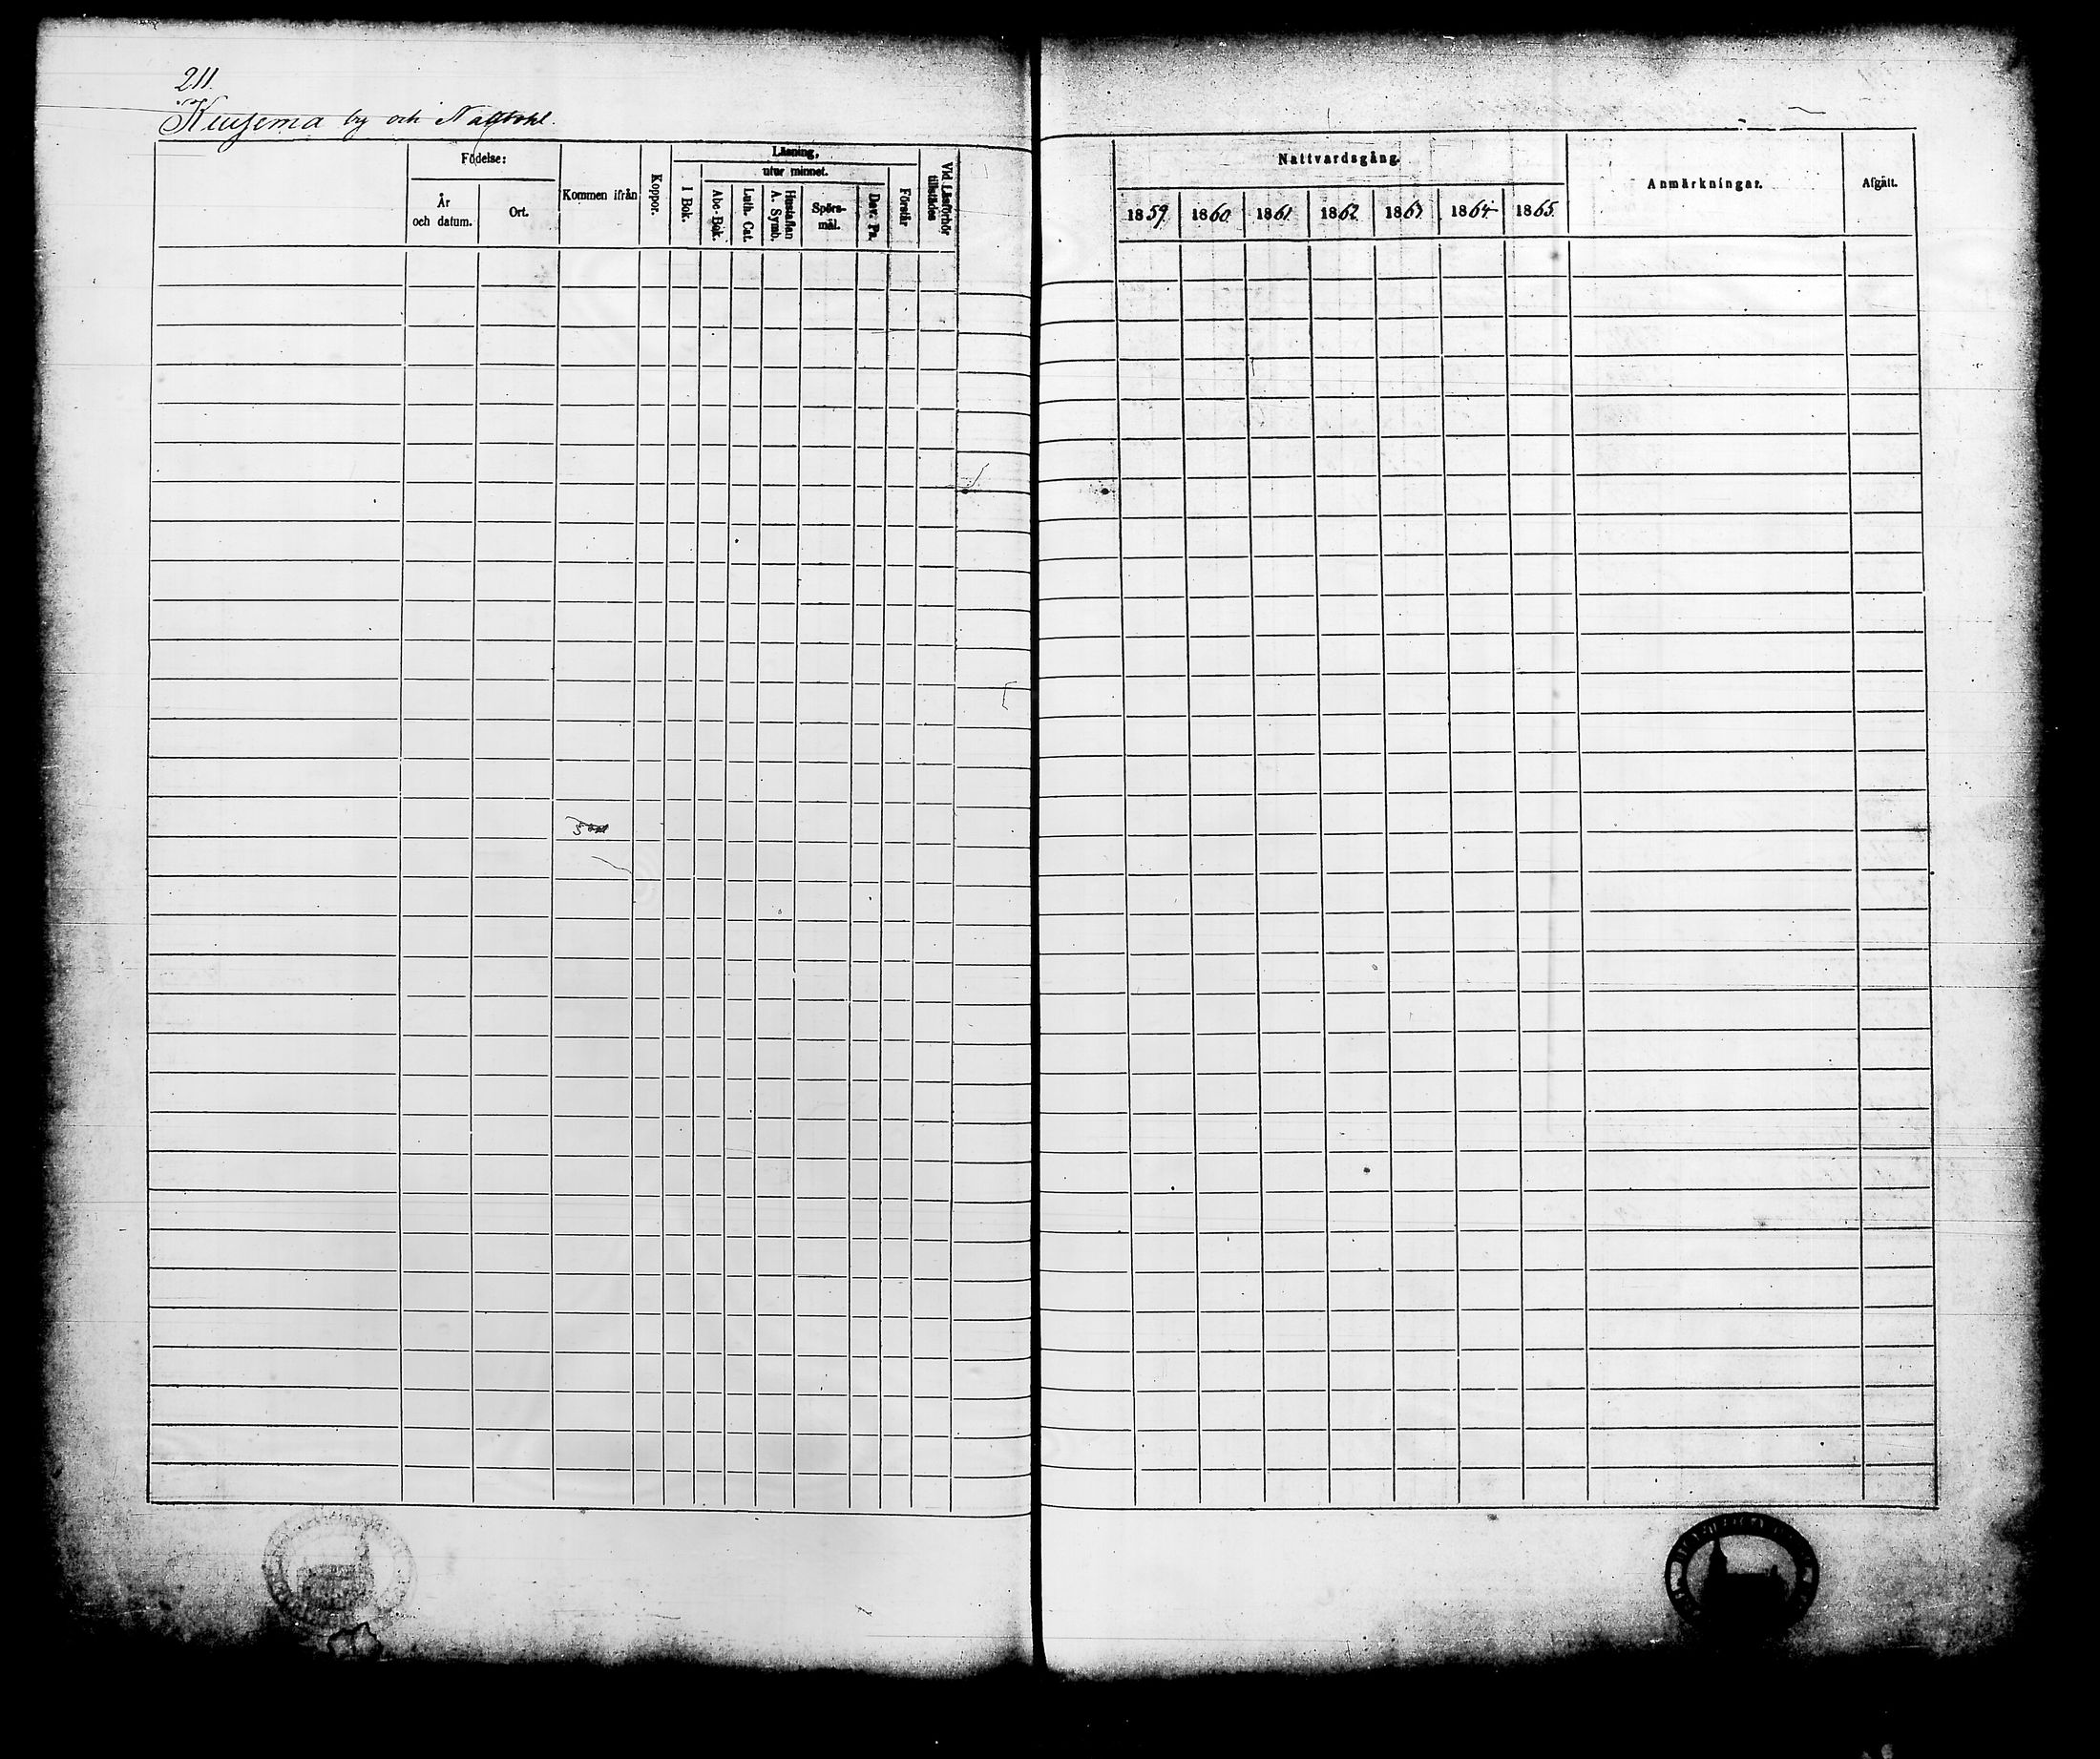 211.
by och
Födelse:
År
och datum.
Ort.
Kommen ifrån
Koppor.
Läsning,
utur minnet.
I Bok.
Abc-Bok.
Luth. Cat.
Hustaflan
A. Symb.
Spörs-
mål.
Dav. Ps.
Förstår
Vid Läsförhör
tillstädes
Nattvardsgång.
1859 1860 1861 1862 1863 1864 1865.
Anmärkningar.
Afgått.